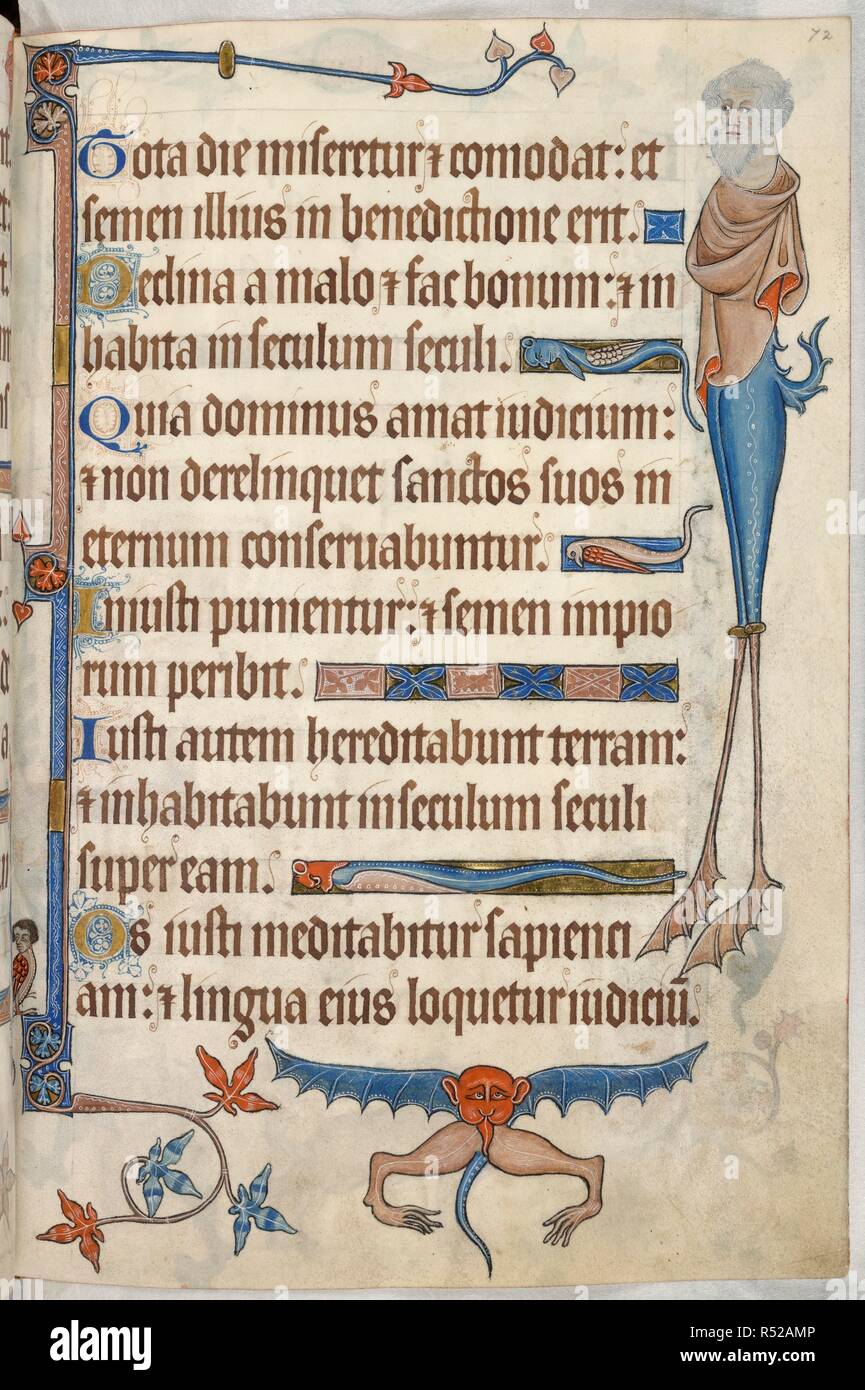 72
Tota die miseretur ⁊ comodat: et
semen illius in benedictione erit.
Declina a malo ⁊ fac bonum: ⁊ in
habita in seculum seculi.
Quia dominus amat iudicium:
⁊ non derelinquet sanctos suos in
eternum conseruabuntur.
Iniusti punientur: ⁊ semen impio
rum peribit.
Iusti autem hereditabunt terram:
⁊ inhabitabunt in seculum seculi
super eam.
Os iusti meditabitur sapienci
am: ⁊ lingua eius loquetur iudiciū.
alamy
Image ID: R52AMP
www.alamy.com